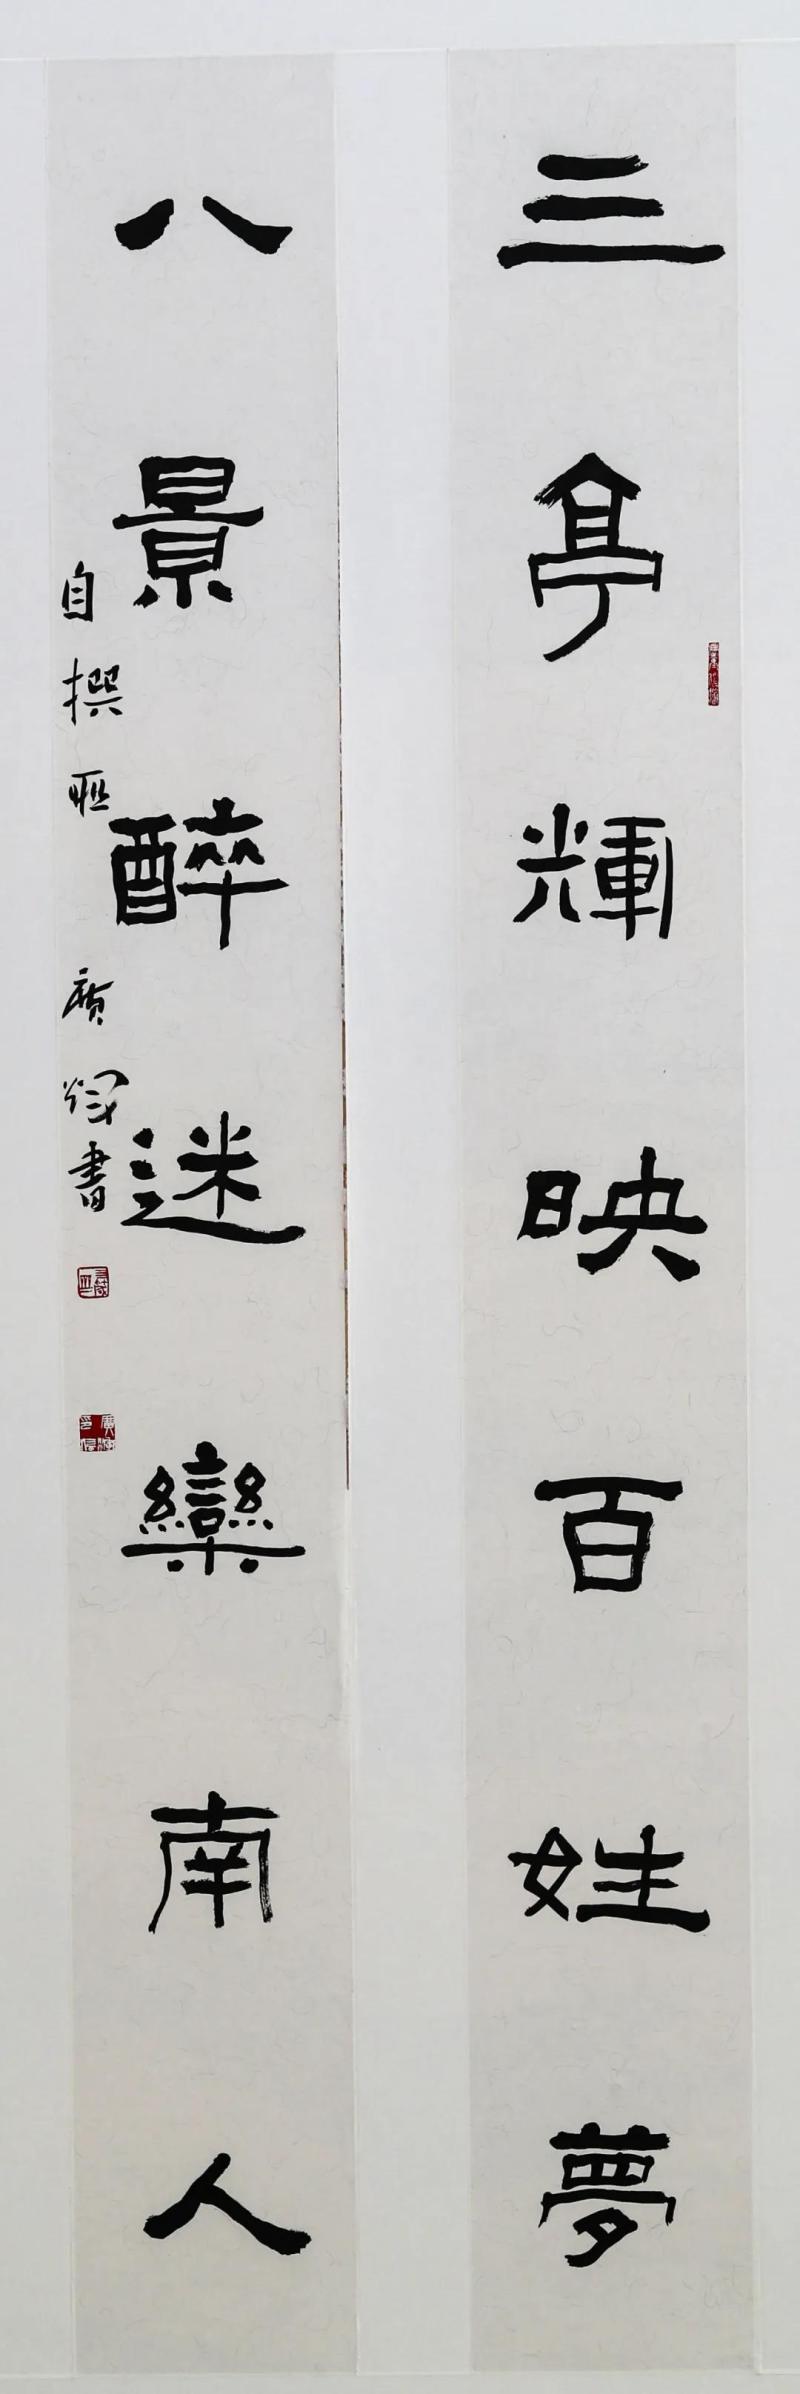 三亭輝映百姓夢
八景醉迷欒南人
自撰联 广辉書